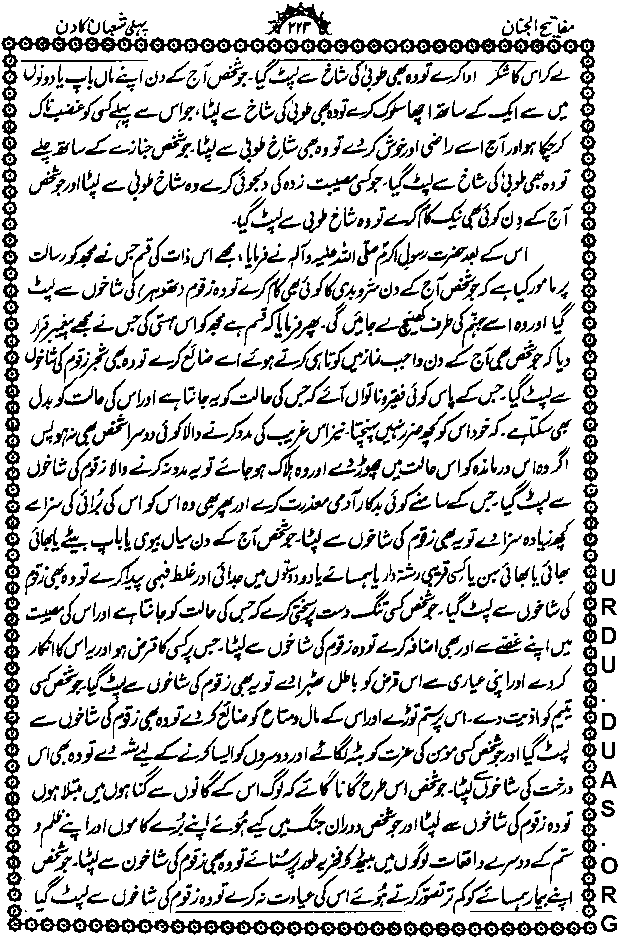 مفاتیح الجنان
۲۲۳
پہلی شعبان کا دن
لے کر اس کا شکر ادا کرے تو وہ بھی طوبیٰ کی شاخ سے لپٹ گیا۔ جو شخص آج کے دن اپنے ماں باپ یا دونوں
میں سے ایک کے ساتھ اچھا سلوک کرے تو وہ بھی طوبیٰ کی شاخ سے لپٹا، جو اس سے پہلے کسی کو غضبناک
کرچکا ہو اور آج اسے راضی اور خوش کردے تو وہ بھی شاخ طوبیٰ سے لپٹا۔ جو شخص جنازے کے ساتھ چلے
تو وہ بھی طوبیٰ کی شاخ سے لپٹ گیا۔ جو کسی مصیبت زدہ کی دلجوئی کرے وہ شاخ طوبیٰ سے لپٹا اور جو شخص
آج کے دن کوئی بھی نیک کام کرے تو وہ شاخ طوبیٰ سے لپٹ گیا۔
اس کے بعد حضرت رسول اکرم صلّی اللہ علیہ وآلہ نے فرمایا، مجھے اس ذات کی قسم جس نے مجھ کو رسالت
پر مامور کیا ہے کہ جو شخص آج کے دن شر و بدی کا کوئی بھی کام کرے تو وہ زقوم (تھوہر) کی شاخوں سے لپٹ
گیا اور وہ اسے جہنم کی طرف کھینچ لے جائیں گی۔ پھر فرمایا کہ قسم ہے مجھ کو اس ہستی کی جس نے مجھے پیغمبر قرار
دیا کہ جو شخص بھی آج کے دن واجب نماز میں کوتاہی کرتے ہوئے اسے ضائع کرے تو وہ بھی شجر زقوم کی شاخوں
سے لپٹ گیا۔ جس کے پاس کوئی فقیر و ناتواں آئے کہ جس کی حالت کو یہ جانتا ہے اور اس کی حالت کو بدل
بھی سکتا ہے۔ کہ خود اس کو کچھ ضرر نہیں پہنچتا۔ نیز اس غریب کی مدد کرنے والا کوئی دوسرا شخص بھی نہ ہو پس
اگر وہ اس درماندہ کو اس حالت میں چھوڑ دے اور وہ ہلاک ہوجائے تو یہ مدد نہ کرنے والا زقوم کی شاخوں
سے لپٹ گیا۔ جس کے سامنے کوئی بدکار آدمی معذرت کرے اور پھر بھی وہ اس کو اس کی برائی کی سزا سے
کچھ زیادہ سزا دے تو یہ بھی زقوم کی شاخوں سے لپٹا۔ جو شخص آج کے دن میاں بیوی یا باپ بیٹے یا بھائی
بھائی یا بھائی بہن یا کسی قریبی رشتہ دار یا ہمسائے یا دو دوستوں میں جدائی اور غلط فہمی پیدا کرے تو وہ بھی زقوم
کی شاخوں سے لپٹ گیا۔ جو شخص کسی تنگ دست پر سختی کرے کہ جس کی حالت کو جانتا ہے اور اس کی مصیبت
میں اپنے غصے سے اور بھی اضافہ کرے تو وہ زقوم کی شاخوں سے لپٹا۔ جس پر کسی کا قرض ہو اور یہ اس کا انکار
کردے اور اپنی عیاری سے اس قرض کو باطل ٹھہرا دے تو یہ بھی زقوم کی شاخوں سے لپٹ گیا جو شخص کسی
یتیم کو اذیت دے۔ اس پر ستم توڑے اور اس کے مال و متاع کو ضائع کردے تو وہ بھی زقوم کی شاخوں سے
لپٹ گیا اور جو شخص کسی مؤمن کی عزت کو بٹہ لگائے اور دوسروں کو ایسا کرنے کے لیے شہ دے تو وہ بھی اس
درخت کی شاخوں سے لپٹا۔ جو شخص اس طرح گانا گائے کہ لوگ اس کے گانوں سے گناہوں میں مبتلا ہوں
تو وہ زقوم کی شاخوں سے لپٹا اور جو شخص دوران جنگ میں کیے ہوئے اپنے بُرے کاموں اور اپنے ظلم و
ستم کے دوسرے واقعات لوگوں میں بیٹھ کر فخریہ طور پر سنائے تو وہ بھی زقوم کی شاخوں سے لپٹا۔ جو شخص
اپنے بیمار ہمسائے کو کم تر تصور کرتے ہوئے اس کی عیادت نہ کرے تو وہ زقوم کی شاخوں سے لپٹ گیا
URDU.DUAS.ORG